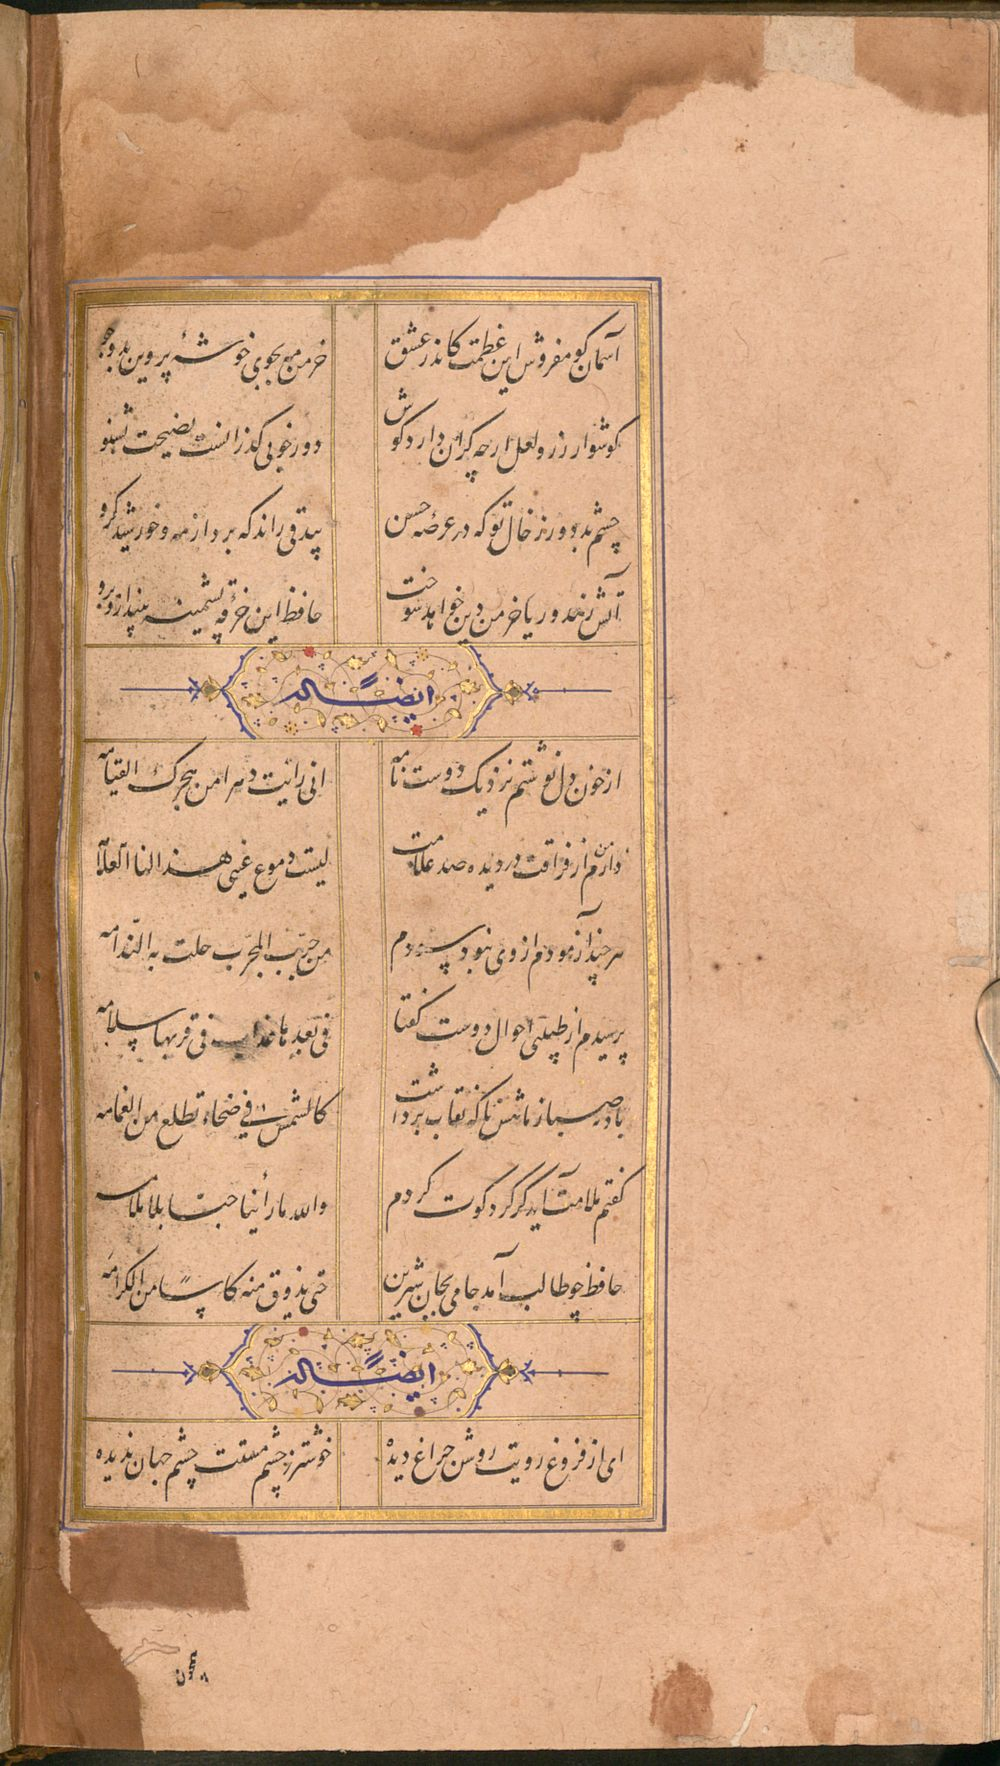 آسمان گو مفروش این عظمت کاندر عشق خرمن مه بجوی خوشهٔ پروین بدو جو
گوشوار زر و لعل ارچه گران دارد گوش دور خوبی گذرانست نصیحت بشنو
چشم بد دور ز خال تو که در عرصه حسن بیدقی راند که برد از مه و خورشید گرو
آتش زهد و ریا خرمن دین خواهد سوخت حافظ این خرقه پشمینه بینداز و برو
ایضاً له
از خون دل نوشتم نزدیک دوست نامه انی رایت دهرا من هجرک القیامه
دارم من از فراقت در دیده صد علامت لیست دموع عینی هذا لنا العلامه
هر چند آزمودم از وی نبود سودم من جرب المجرب حلت به الندامه
پرسیدم از طبیبی احوال دوست گفتا فی بعدها عذاب فی قربها سلامه
باد صبا ز ماهش ناگه نقاب برداشت کالشمس فی ضحاء تطلع من الغمامه
گفتم ملامت آید گر گرد کوت کردم والله ما رأینا حبا بلا ملامه
حافظ چو طالب آمد جامی بجان شیرین حتی یذوق منه کاسا من الکرامه
ایضاً له
ای از فروغ رویت روشن چراغ دیده خوشتر ز چشم مستت چشم جهان ندیده